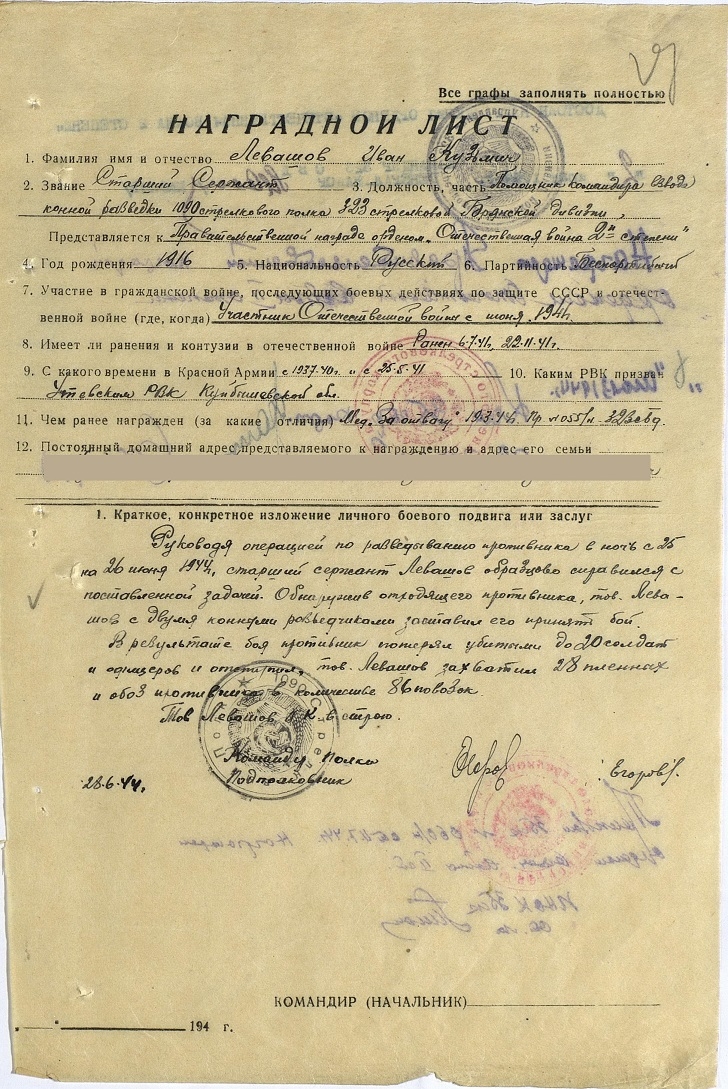 Все графы заполнять полностью
НАГРАДНОЙ ЛИСТ
1. Фамилия имя и отчество Левашов Иван Кузьмич
2. Звание Старший Сержант 3. Должность, часть Помощник командира взвода
конной разведки 1090 стрелкового полка 323 стрелковой Брянской дивизии,
Представляется к Правительственной награде орденом „Отечественная война 2й степени"
4. Год рождения 1916 5. Национальность Русский 6. Партийность Беспартийный
7. Участие в гражданской войне, последующих боевых действиях по защите СССР и отечест-
венной войне (где, когда) Участник Отечественной войны с июня 1941г.
8. Имеет ли ранения и контузии в отечественной войне Ранен 6.7.41г, 22.11.41г.
9. С какого времени в Красной Армии с 1937-40г. и с 25.5.41 10. Каким РВК призван
Утевским РВК Куйбышевской обл.
11. Чем ранее награжден (за какие отличия) Мед. „За отвагу" 19.3.44г. Пр №055/н 323 сбд.
12. Постоянный домашний адрес представляемого к награждению и адрес его семьи
1. Краткое, конкретное изложение личного боевого подвига или заслуг
Руководя операцией по разведыванию противника в ночь с 25
на 26 июня 1944г, старший сержант Левашов образцово справился с
поставленной задачей. Обнаружив отходящего противника, тов. Лева-
шов с двумя конными разведчиками заставил его принять бой.
В результате боя противник потерял убитыми до 20 солдат
и офицеров и отступил, тов. Левашов захватил 28 пленных
и обоз противника в количестве 86 повозок.
Тов Левашов в строю.
Командир Полка
Подполковник Егоров
28.6.44г.
КОМАНДИР (НАЧАЛЬНИК)
194 г.